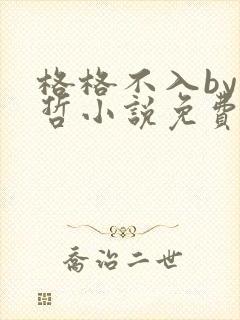 格格不入by
哲小說免費
喬治二世